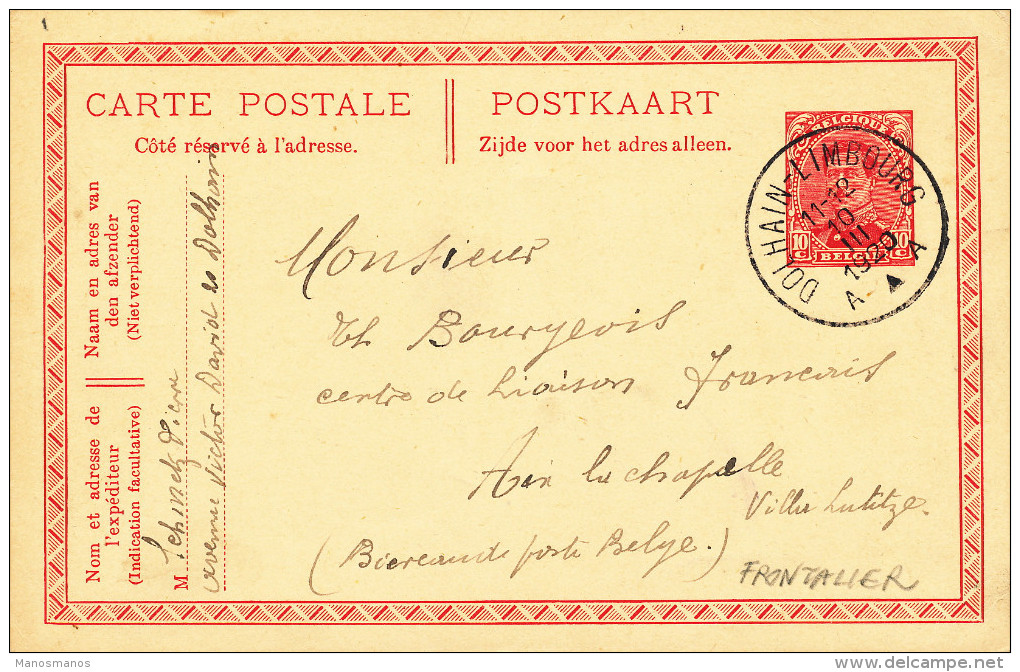 CARTE POSTALE
Côté réservé à l'adresse.
POSTKAART
Zijde voor het adres alleen.
BELGIQUE
10 C 10 C
BELGIE
DOLHAIN-LIMBOURG
11-12
10
III
1920
A ▲ A
Naam en adres van
den afzender
(Niet verplichtend)
Nom et adresse de
l'expéditeur
(Indication facultative)
M Schinetz Pierre
avenue Victor David Dolhain
Monsieur
Th Bourgeois
centre de Liaison Francais
Aix la chapelle
Villa
(Bureau de poste Belge.)
FRONTALIER
Manosmanos
delcampe.net